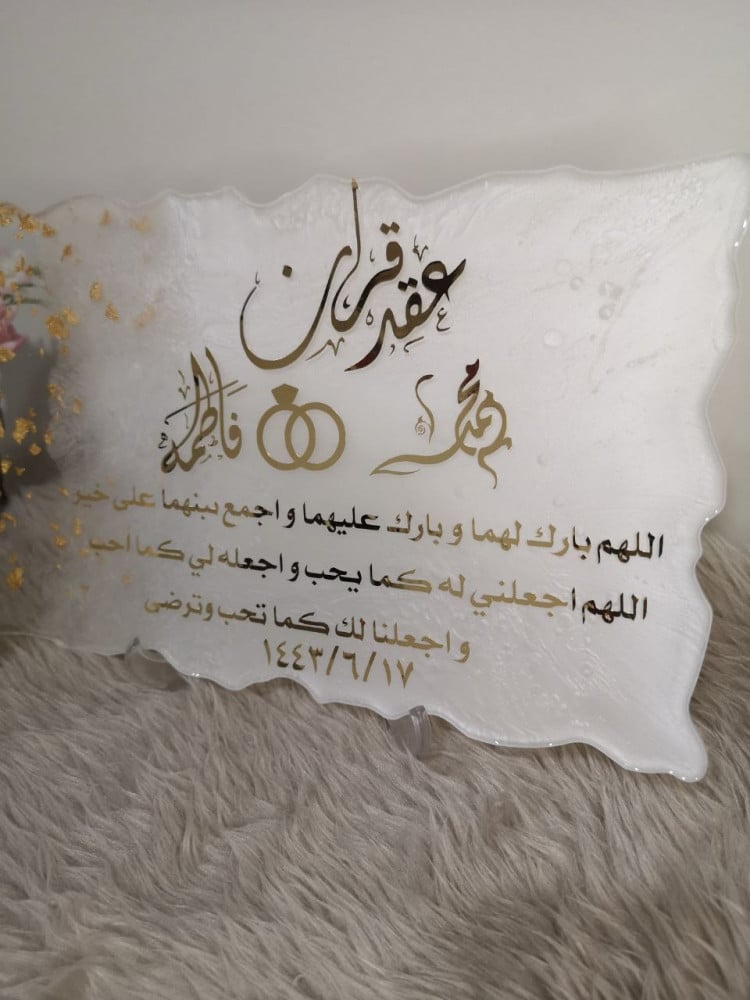 عقد قران
محمد فاطمة
اللهم بارك لهما وبارك عليهما واجمع بينهما على خير
اللهم اجعلني له كما يحب واجعله لي كما احب
واجعلنا لك كما تحب وترضى
١٤٤٣/٦/١٧